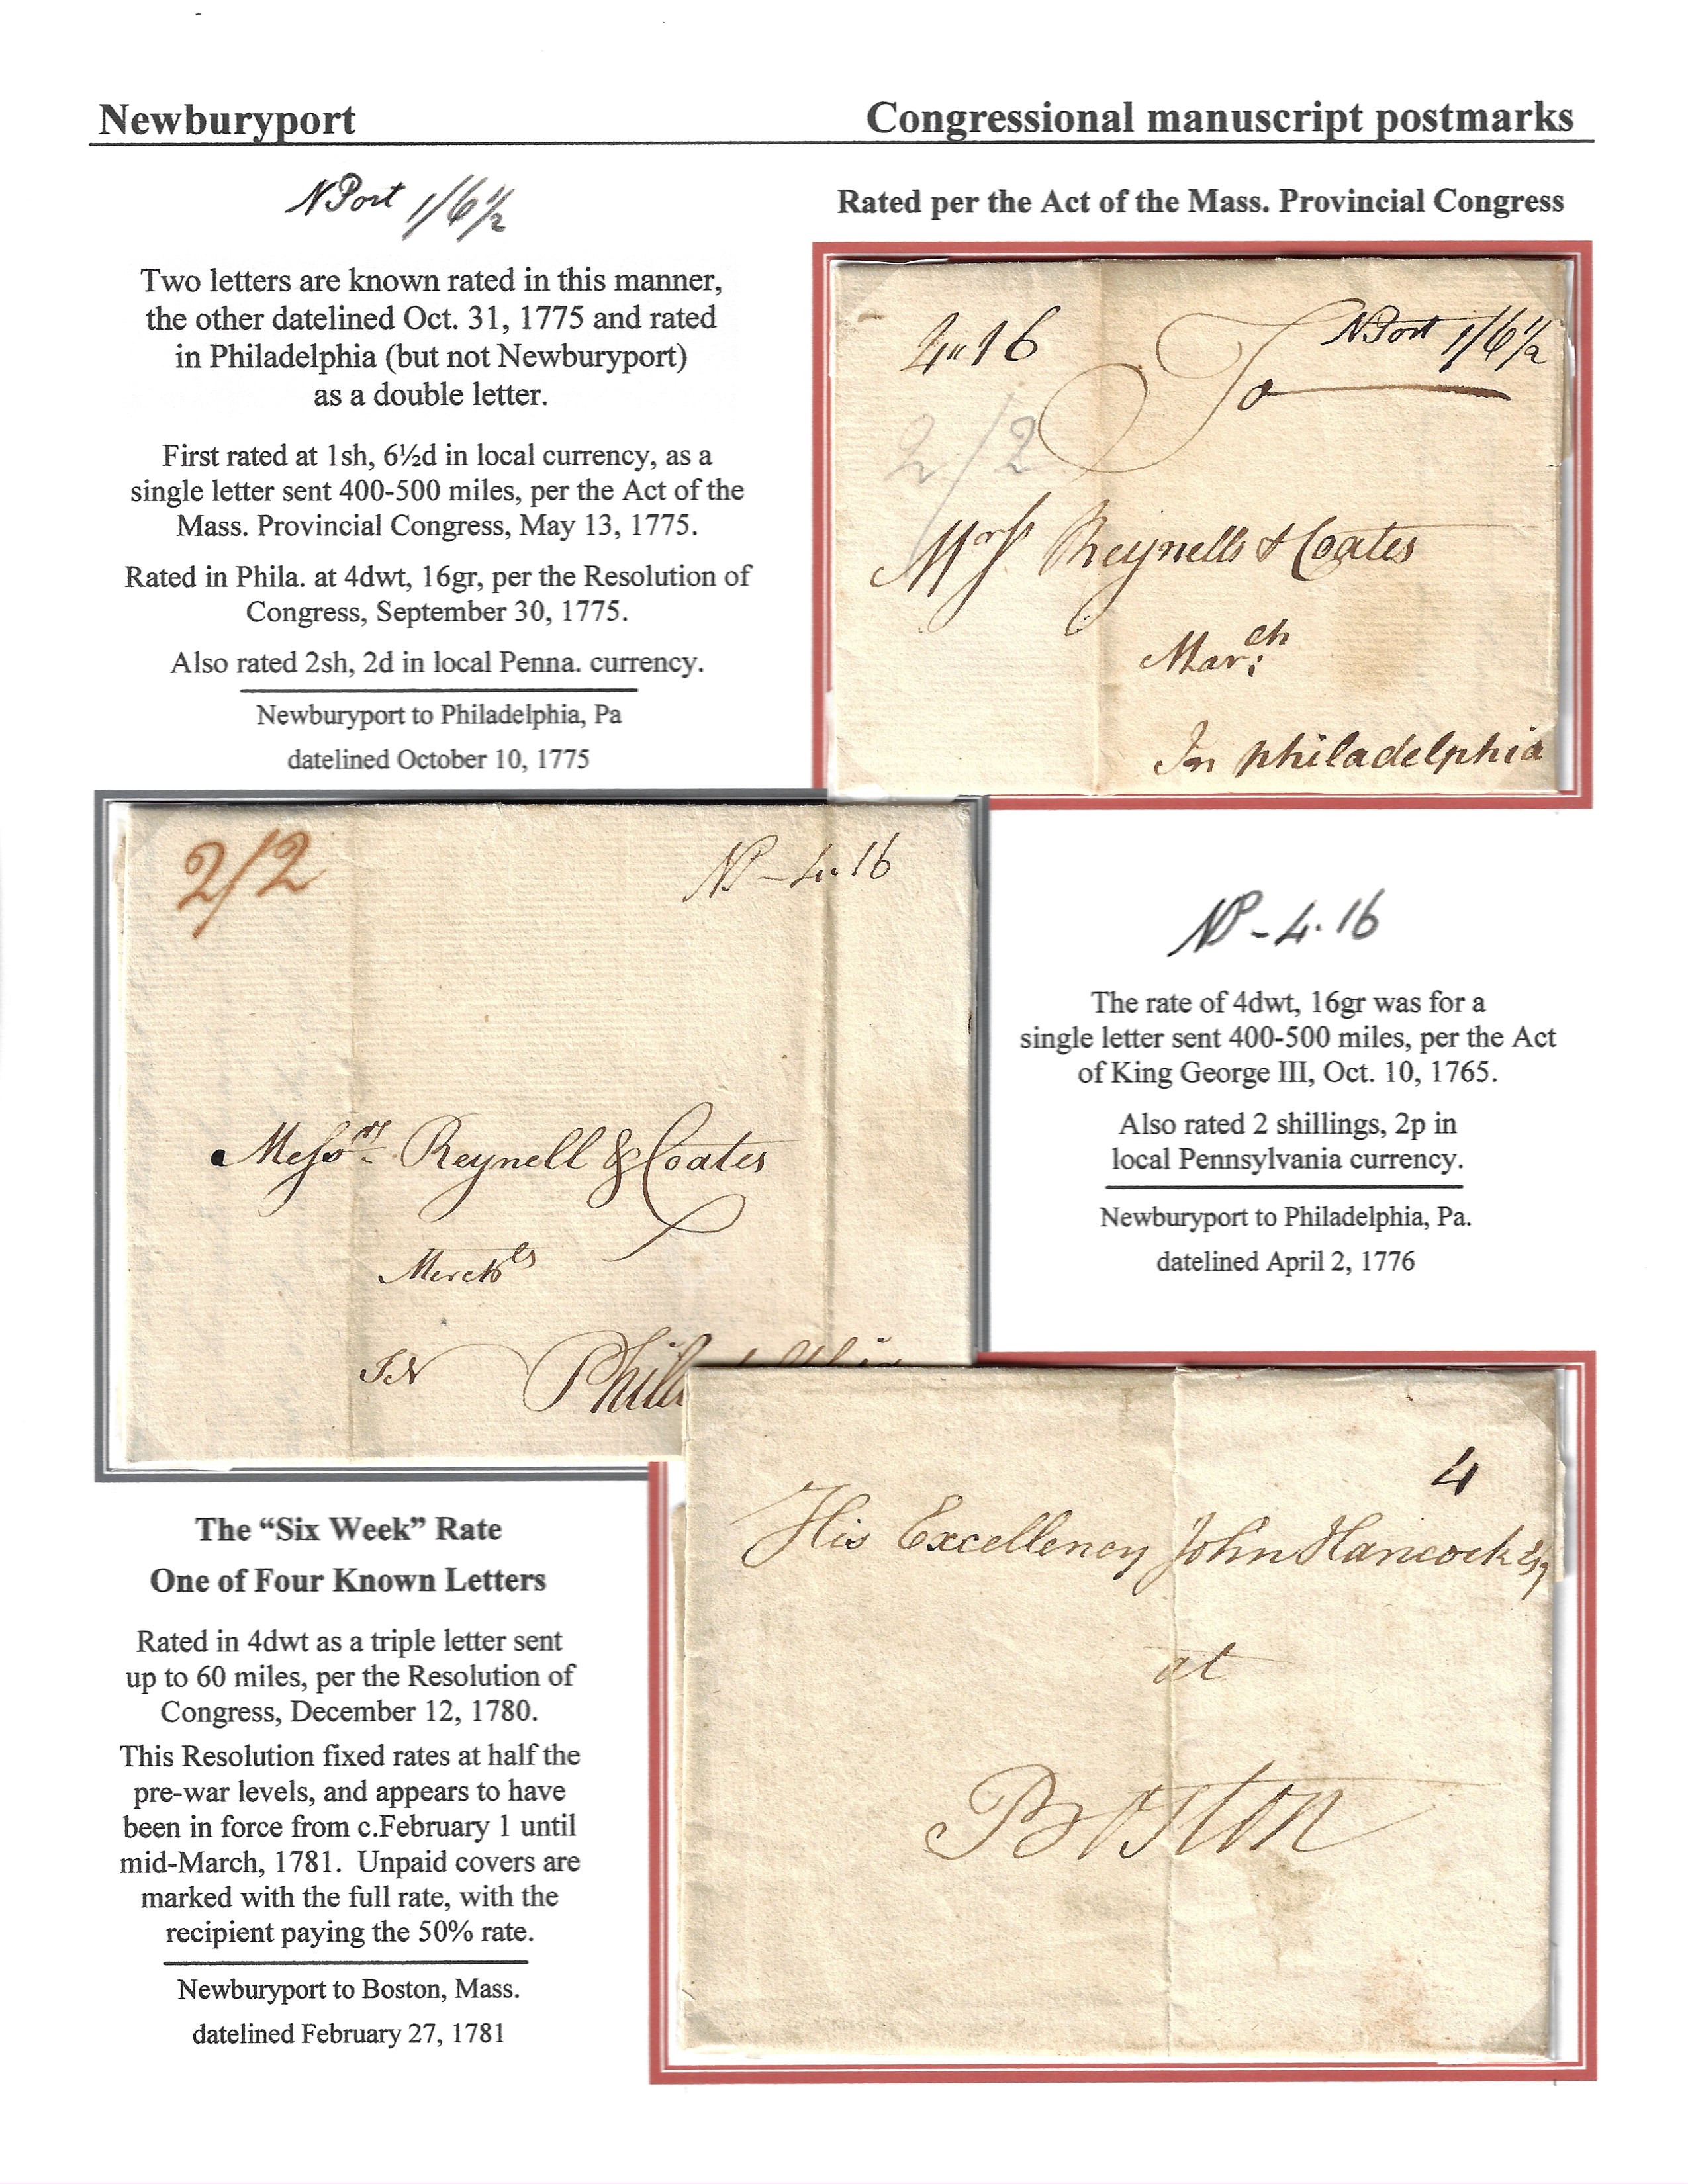 Newburyport
Congressional manuscript postmarks
N Port 1/6½
Two letters are known rated in this manner,
the other datelined Oct. 31, 1775 and rated
in Philadelphia (but not Newburyport)
as a double letter.
First rated at 1sh, 6½d in local currency, as a
single letter sent 400-500 miles, per the Act of the
Mass. Provincial Congress, May 13, 1775.
Rated in Phila. at 4dwt, 16gr, per the Resolution of
Congress, September 30, 1775.
Also rated 2sh, 2d in local Penna. currency.
Newburyport to Philadelphia, Pa
datelined October 10, 1775
Rated per the Act of the Mass. Provincial Congress
4" 16
To
N Port 1/6½
2/2
Mrss Reynells & Coates
March:
In philadelphia
2/2
NP - 4.. 16
Messrs Reynell & Coates
Merchts
IN Phil
NP - 4. 16
The rate of 4dwt, 16gr was for a
single letter sent 400-500 miles, per the Act
of King George III, Oct. 10, 1765.
Also rated 2 shillings, 2p in
local Pennsylvania currency.
Newburyport to Philadelphia, Pa.
datelined April 2, 1776
The “Six Week” Rate
One of Four Known Letters
Rated in 4dwt as a triple letter sent
up to 60 miles, per the Resolution of
Congress, December 12, 1780.
This Resolution fixed rates at half the
pre-war levels, and appears to have
been in force from c.February 1 until
mid-March, 1781. Unpaid covers are
marked with the full rate, with the
recipient paying the 50% rate.
Newburyport to Boston, Mass.
datelined February 27, 1781
4
His Excellency John Hancock Esq
at
Boston